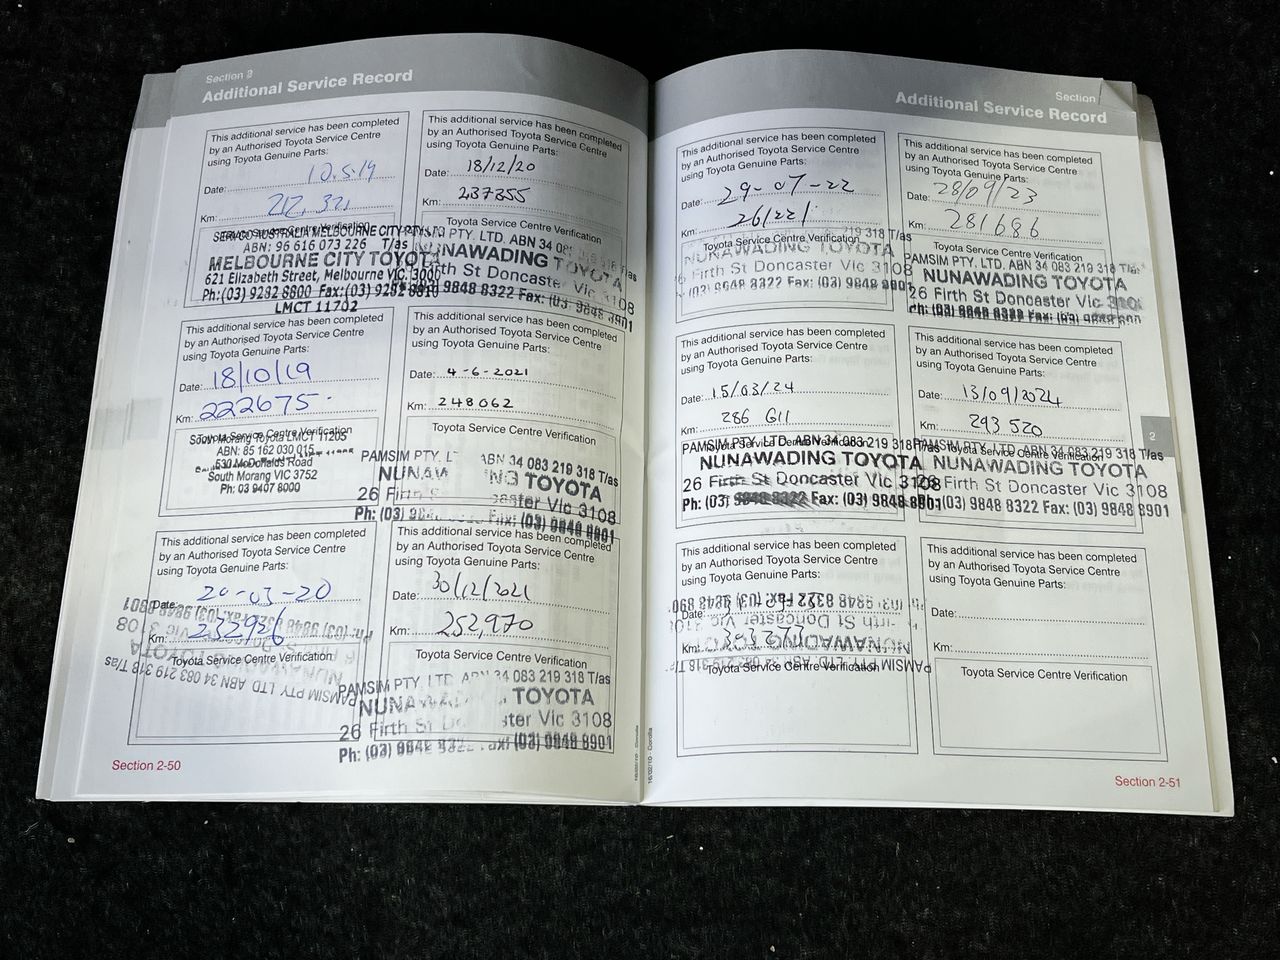 Section
Additional Service Record
This additional service has been completed
by an Authorised Toyota Service Centre
using Toyota Genuine Parts:
Date: 10.5.19
Km: 212,321
SERVCO AUSTRALIA MELBOURNE CITY PTY
ABN: 96 616 073 226 T/as
MELBOURNE CITY TOYOTA
621 Elizabeth Street, Melbourne VIC. 3000
Ph:(03) 9282 8800 Fax:(03) 9282 8810
LMCT 11702
This additional service has been completed
by an Authorised Toyota Service Centre
using Toyota Genuine Parts:
Date: 18/10/19
Km: 222675
Toyota Service Centre Verification
South Morang Toyota LMCT 11205
ABN: 85 162 030 015
530 McDonalds Road
South Morang VIC 3752
Ph: 03 9407 8000
This additional service has been completed
by an Authorised Toyota Service Centre
using Toyota Genuine Parts:
Date: 20-03-20
Km: 232926
Toyota Service Centre Verification
PAMSIM PTY. LTD. ABN 34 083 219 318 T/as
NUNAWADING TOYOTA
Doncaster Vic 3108
Ph: (03) 9848 8322 Fax: (03) 9848 8901
Section 2-50
This additional service has been completed
by an Authorised Toyota Service Centre
using Toyota Genuine Parts:
Date: 18/12/20
Km: 237355
Toyota Service Centre Verification
PTY. LTD. ABN 34 T/as
NUNAWADING TOYOTA
Firth St Doncaster Vic 3108
9848 8322 Fax: (03) 9848 8901
This additional service has been completed
by an Authorised Toyota Service Centre
using Toyota Genuine Parts:
Date: 4-6-2021
Km: 248062
Toyota Service Centre Verification
PAMSIM PTY. ABN 34 083 219 318 T/as
NUNAWADING TOYOTA
26 Firth Doncaster Vic 3108
Ph: (03) Fax: (03) 9848 8901
This additional service has been completed
by an Authorised Toyota Service Centre
using Toyota Genuine Parts:
Date: 30/12/2021
Km: 252,970
Toyota Service Centre Verification
PAMSIM PTY. LTD. 34 083 219 318 T/as
NUNA TOYOTA
26 Firth St ster Vic 3108
Ph: (03) 9848 (03) 9848 8901
16/02/10 - Corolla
Section
Additional Service Record
This additional service has been completed
by an Authorised Toyota Service Centre
using Toyota Genuine Parts:
Date: 29-07-22
Km:
Toyota Service Centre Verification
219 318 T/as
NUNAWADING TOYOTA
Firth St Doncaster Vic 3108
(03) 9848 8322 Fax: (03) 9848 8901
This additional service has been completed
by an Authorised Toyota Service Centre
using Toyota Genuine Parts:
Date: 28/09/23
Km: 281686
Toyota Service Centre Verification
PAMSIM PTY. LTD. ABN 34 083 219 318 T/as
NUNAWADING TOYOTA
26 Firth St Doncaster Vic 3108
Ph: (03) 9848 8322 Fax: (03)
This additional service has been completed
by an Authorised Toyota Service Centre
using Toyota Genuine Parts:
Date: 15/03/24
Km: 286 611
Toyota Service Centre Verification
PAMSIM PTY. LTD. ABN 34 083 219 318
NUNAWADING TOYOTA
26 Firth St Doncaster Vic 3108
Ph: (03) 9848 8322 Fax: (03) 9848 8901
This additional service has been completed
by an Authorised Toyota Service Centre
using Toyota Genuine Parts:
Date: 13/09/2024
Km: 293 520
Toyota Service Centre Verification
PAMSIM PTY. LTD. ABN 34 083 219 318 T/as
NUNAWADING TOYOTA
Firth St Doncaster Vic 3108
Ph: (03) 9848 8322 Fax: (03) 9848 8901
2
This additional service has been completed
by an Authorised Toyota Service Centre
using Toyota Genuine Parts:
Date:
Km:
Toyota Service Centre Verification
PAMSIM PTY. LTD. ABN 34 318 T/as
NUNAWADING TOYOTA
Firth St Doncaster Vic
9848 8322 Fax: (03) 9848 890
This additional service has been completed
by an Authorised Toyota Service Centre
using Toyota Genuine Parts:
Date:
Km:
Toyota Service Centre Verification
16/02/10 - Corolla
Section 2-51